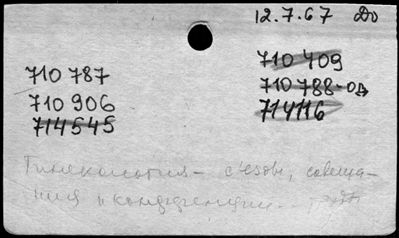 12.7.67 До
710 409
710 787
710 788-од
710 906
714116
714545
Гинекология - съезды, совеща-
ния и конференции.